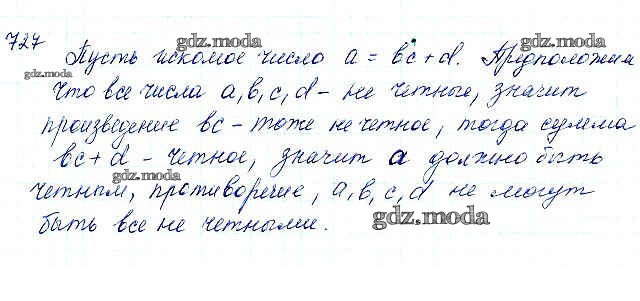 727
gdz.moda
gdz.moda
Пусть искомое число a = bc + d. Предположим
что все числа a, b, c, d - не четные, значит
произведение bc - тоже не четное, тогда сумма
bc + d - четное, значит a должно быть
gdz.moda
четным, противоречие, a, b, c, d не могут
gdz.moda
быть все не четными.